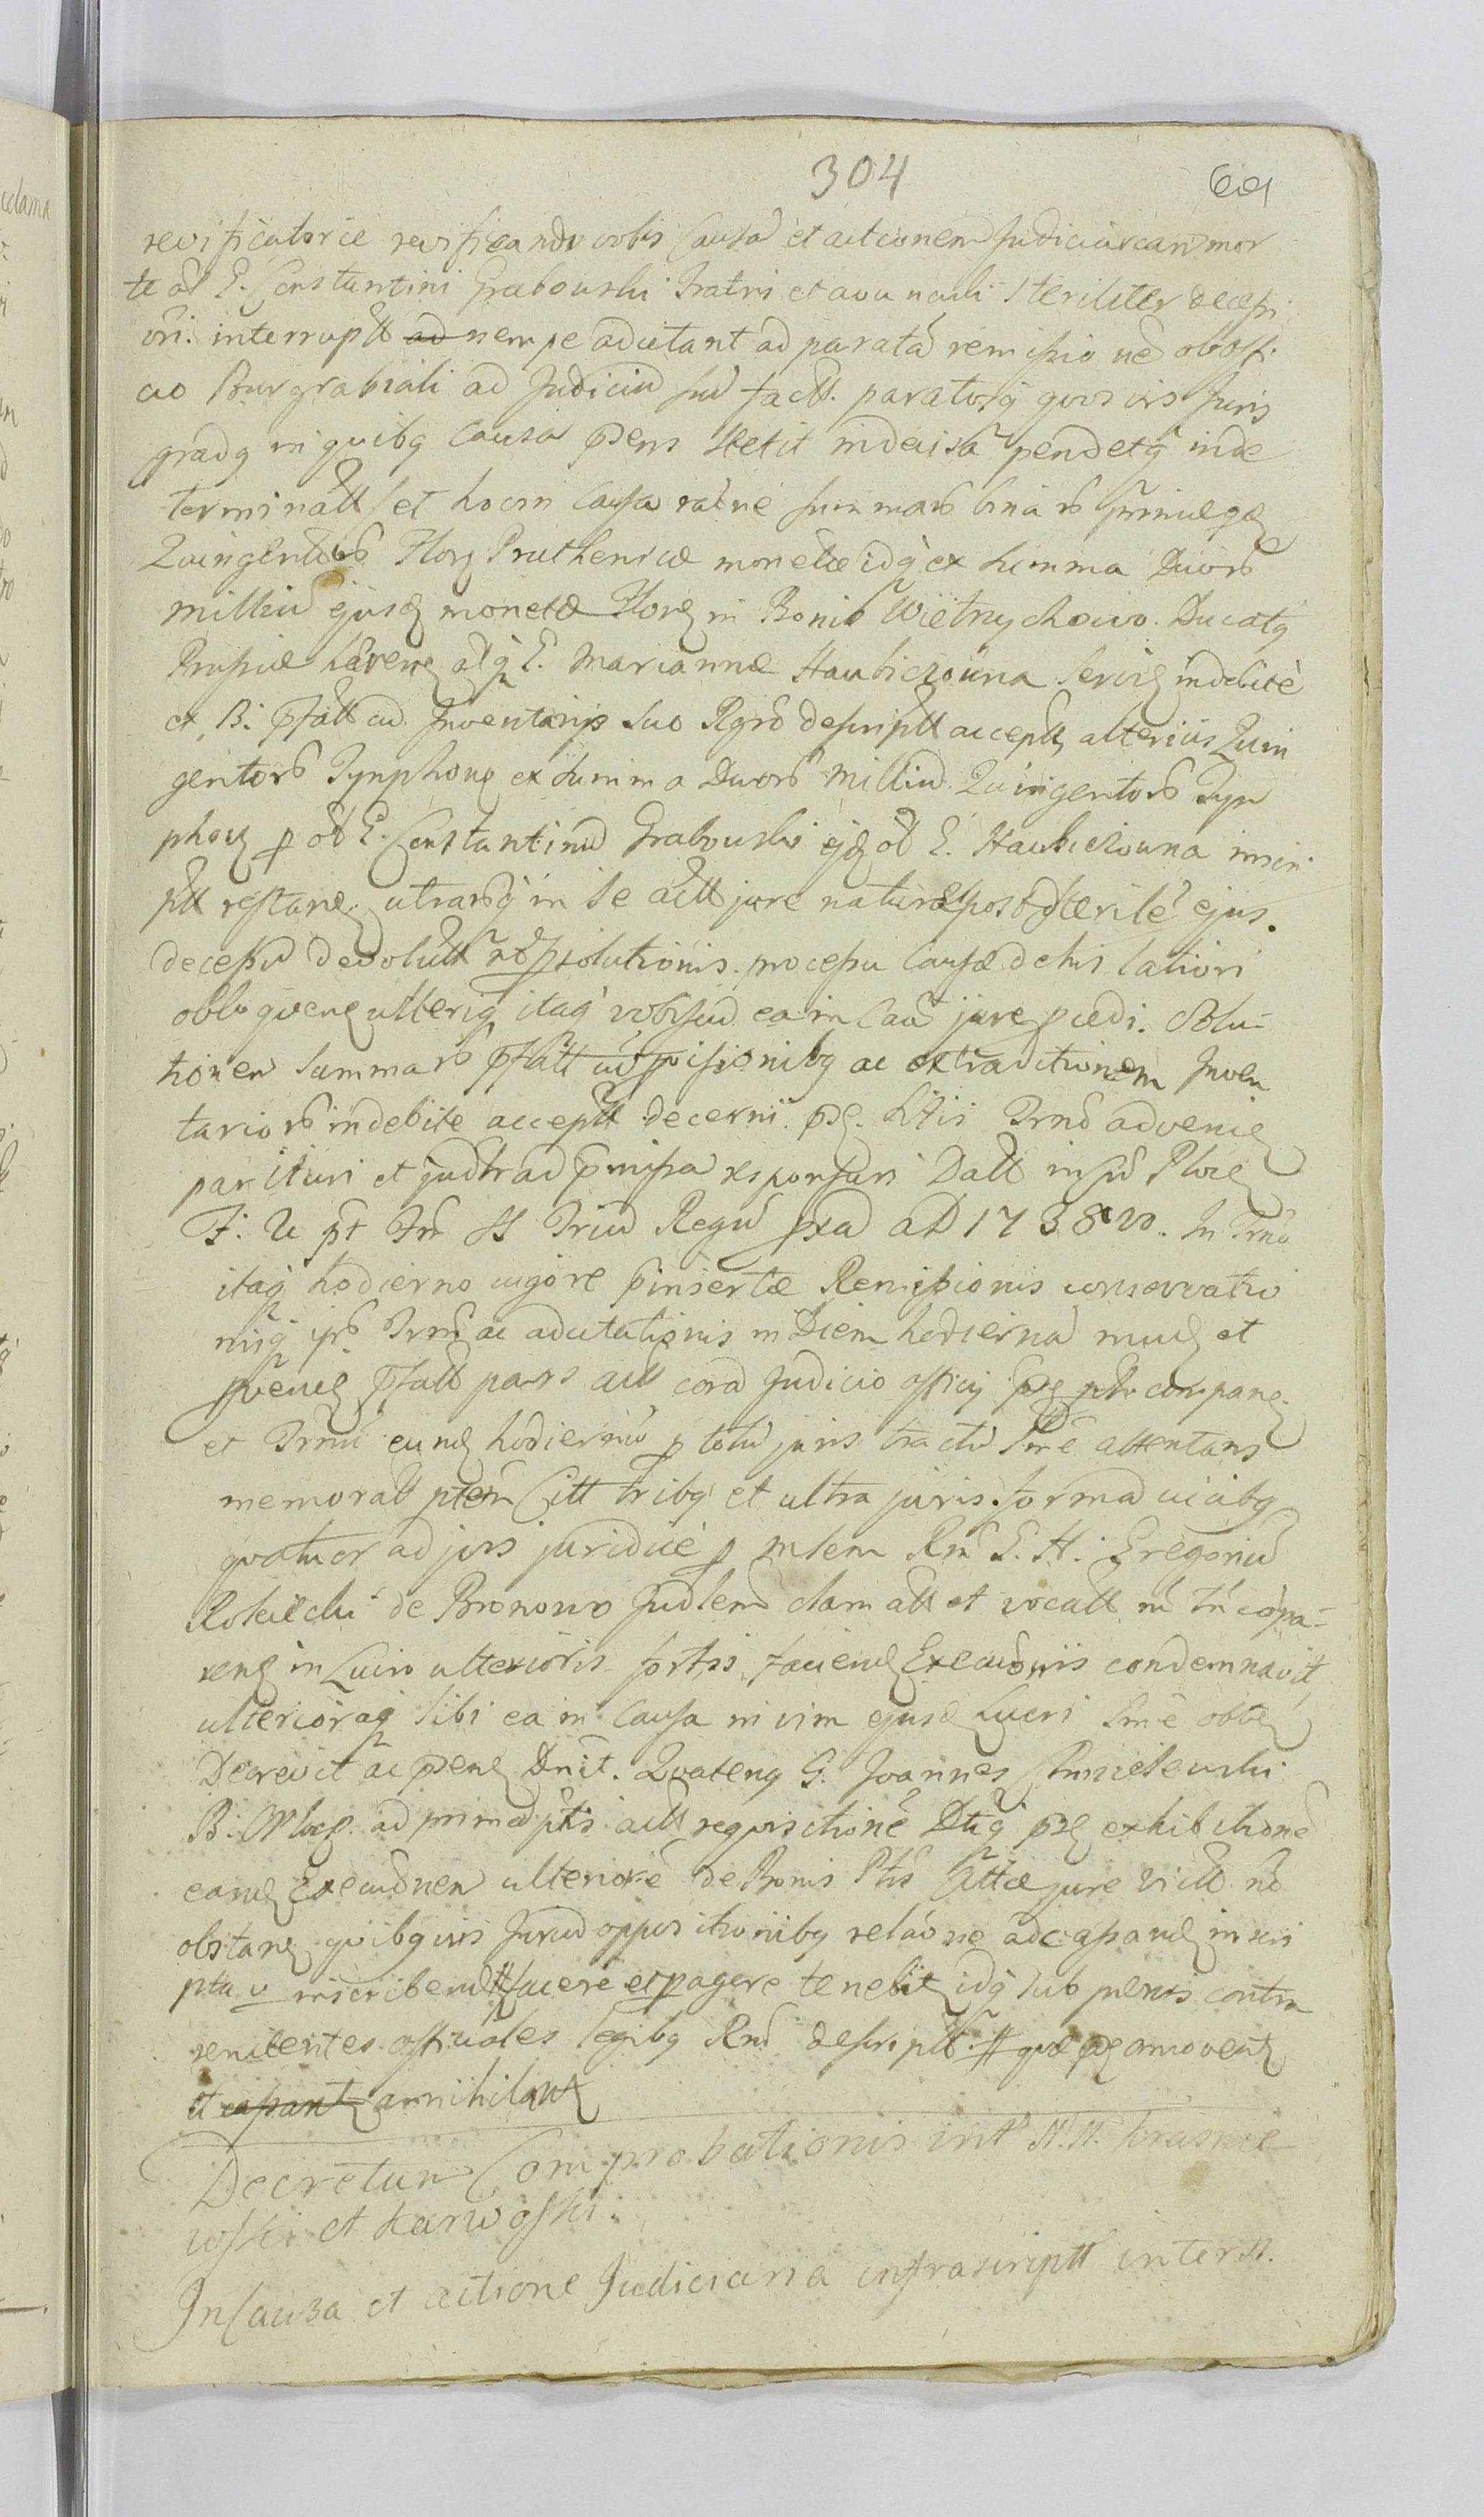 304 69
revificatorie revificando vobis Causã et actionem Judiciariam mor
te ol G. Constantini Grabowski Fratris et avunculi steriliter decessi
vri. interruptt ad nempe adcitant ad paratã remissionẽ ob offi
cio Burgrabiali ad Judiciũ suũ factt. paratosq quosvis Juris
gradq in quibq Causa pens stetit indecisa pendetq inde
terminatt et hocin Causa raõne summarũ binarũ primæqz
Quingentorũ Florz Pruthenicæ monetæ idq ex summa Duorũ
milliũ ejusdz monetæ Florz in Bonis Wietrzychowo. Ducatq
Prussiæ hærenz olqz G. Mariannæ Haubiczowna servitz indebitè
et B. pfatt cũ Inventarijs suo Rgrõ descriptt acceptt, alterius Quin
gentorũ Tynphonz ex summa Duorũ Milliũ Quingentorũ Tyn
phonz p ol G. Constantinũ Grabowski ejdz ol G. Haubiczowna inscri
ptt restanz utrarũq in se actt jure naturæ post sterilẽ ejus.
decessũ devolutt nõ psolutionis. processu Causæ dehis latiori
obloquenz ulteriq itaq vobisũd ea in Caũ jure pcedi. Solu-
tionem Summarũ pfatt cũ pvisionibq ac extraditionem Inven
tariorũ indebite acceptt decerni. psz. littis Trnõ advenienz
parituri et judtr ad pmissa responsuri Datt in Cũ Plocz
F: Ju pt Frr SS Triũ Regũ pxa AD 1738vo. In Trnõ
itaq hodierno vigore pinsertæ Remissionis conservatio
nisq ips Trni ac adcitationis in Diem hodiernã mucz et
pvenienz pfatt pars actt corã Judicio officij psz ptr companz
et Trnũ eunz hodiernũ p totũ juris tractũ Pmẽ attentans
memoratt ptem Citt tribq et ultra juris formã vicibq
quatuor ad jus juridicè p mlem Rm G. H. Gregoriũ
de Bronowo Judlem clamatt et vocatt nõ cõpa-
renz in Lucro ulterioris sortis, facienz Executionis condemnavit,
ulterioraq sibi ea in Causa in vim ejusdz Lucri Smẽ obtez
Decrevit ac psenz Dnit. Quatenq G. Joannes Chmielewski
B. Ploc. ad primã ptis actt requisitionẽ Dtiq psz exhibitionẽ
eanz Executionem ulteriorẽ de Bonis Ptis Cittæ jure victt nõ
obstanz quibqvis Juriũ oppositionibq relaõne adcapanz inscri
pta v inscribenz facere et pagere tenebitz idq sub pœnis contra
renitentes officiales legibq Rni descriptt. quæ amovent
et cassant annihilant
Decretum Comprobationis int N.N. Krasnie
wski et Karwosski.
In Causa et actione Judiciaria infrascriptt inter N.